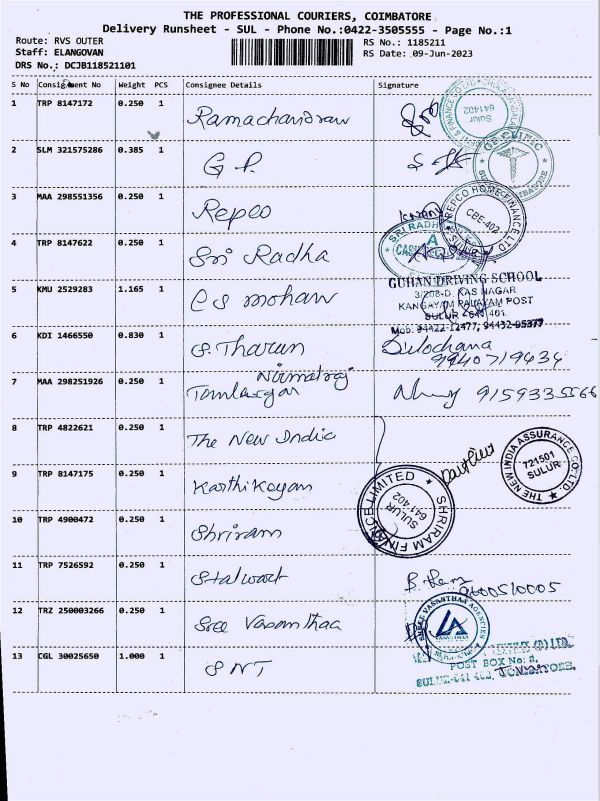 THE PROFESSIONAL COURIERS, COIMBATORE
Delivery Runsheet - SUL - Phone No.:0422-3505555 - Page No.:1
Route: RVS OUTER RS No.: 1185211
Staff: ELANGOVAN RS Date: 09-Jun-2023
DRS No.: DCJB118521101
S No Consignment No Weight PCS Consignee Details Signature
1 TRP 8147172 0.250 1 Ramachandran
SULUR
641402
2 SLM 321575286 0.385 1 G P.
GP CLINIC
3 MAA 298551356 0.250 1 Repco
REPCO HOME FINANCE LTD
CBE-402
SULUR
4 TRP 8147622 0.250 1 Sri Radha
SRI RADHA
A
5 KMU 2529283 1.165 1 CS mohan
GUHAN DRIVING SCHOOL
3/208-D, KAS NAGAR
KANGAYAM PALAYAM POST
SULUR - 641 401.
Mob: 94422-12477, 94432-85377
6 KDI 1466550 0.830 1 S. Tharun Sulochana
9940719434
7 MAA 298251926 0.250 1 Nirmalraj
9159335566
8 TRP 4822621 0.250 1 The New India
THE NEW INDIA ASSURANCE CO LTD
721501
SULUR
9 TRP 8147175 0.250 1 Karthikeyan
SHRIRAM FINANCE LIMITED
SULUR
641 402
10 TRP 4900472 0.250 1 Shriram
11 TRP 7526592 0.250 1 Stalwart
9600510005
12 TRZ 250003266 0.250 1 Sree Vasanthaa
SREE VASANTHAA AGENCIES
13 CGL 30025650 1.000 1 SNT
(P) LTD.
POST BOX No: 2.
SULUR-641 402, COIMBATORE.